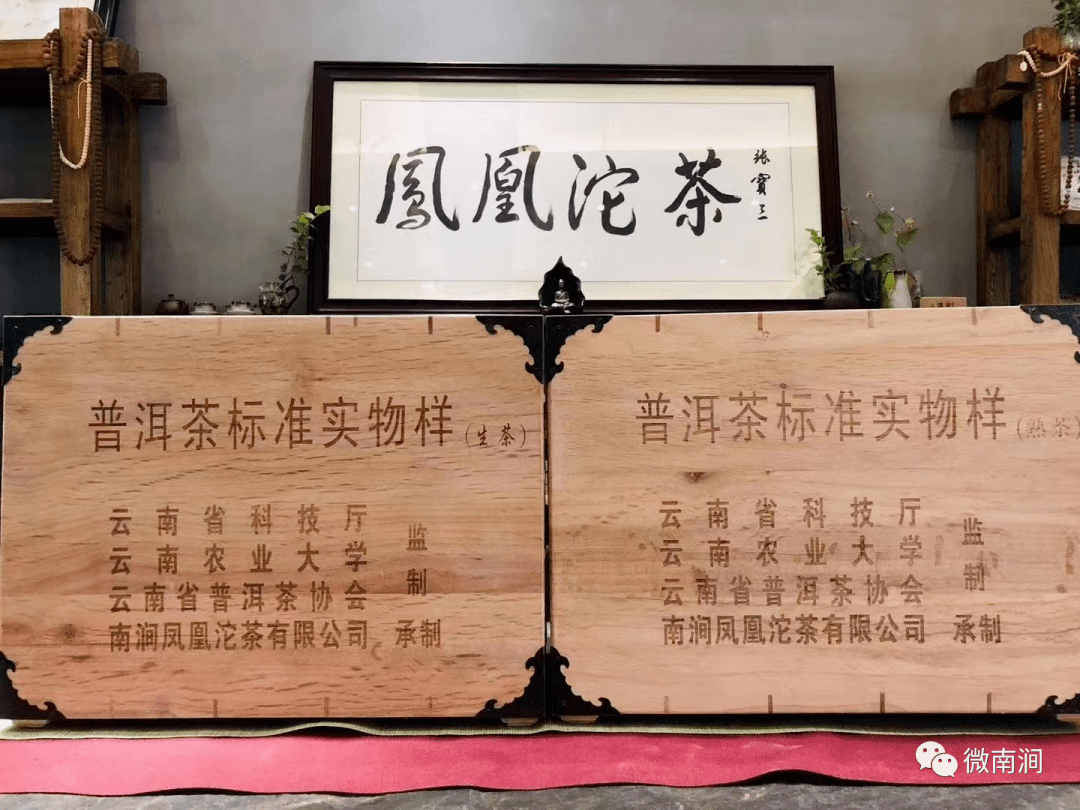 鳳凰沱茶
張寶三
普洱茶标准实物样(生茶)
云南省科技厅
云南农业大学
云南省普洱茶协会
监制
南涧凤凰沱茶有限公司 承制
普洱茶标准实物样(熟茶)
云南省科技厅
云南农业大学
云南省普洱茶协会
监制
南涧凤凰沱茶有限公司 承制
微南涧